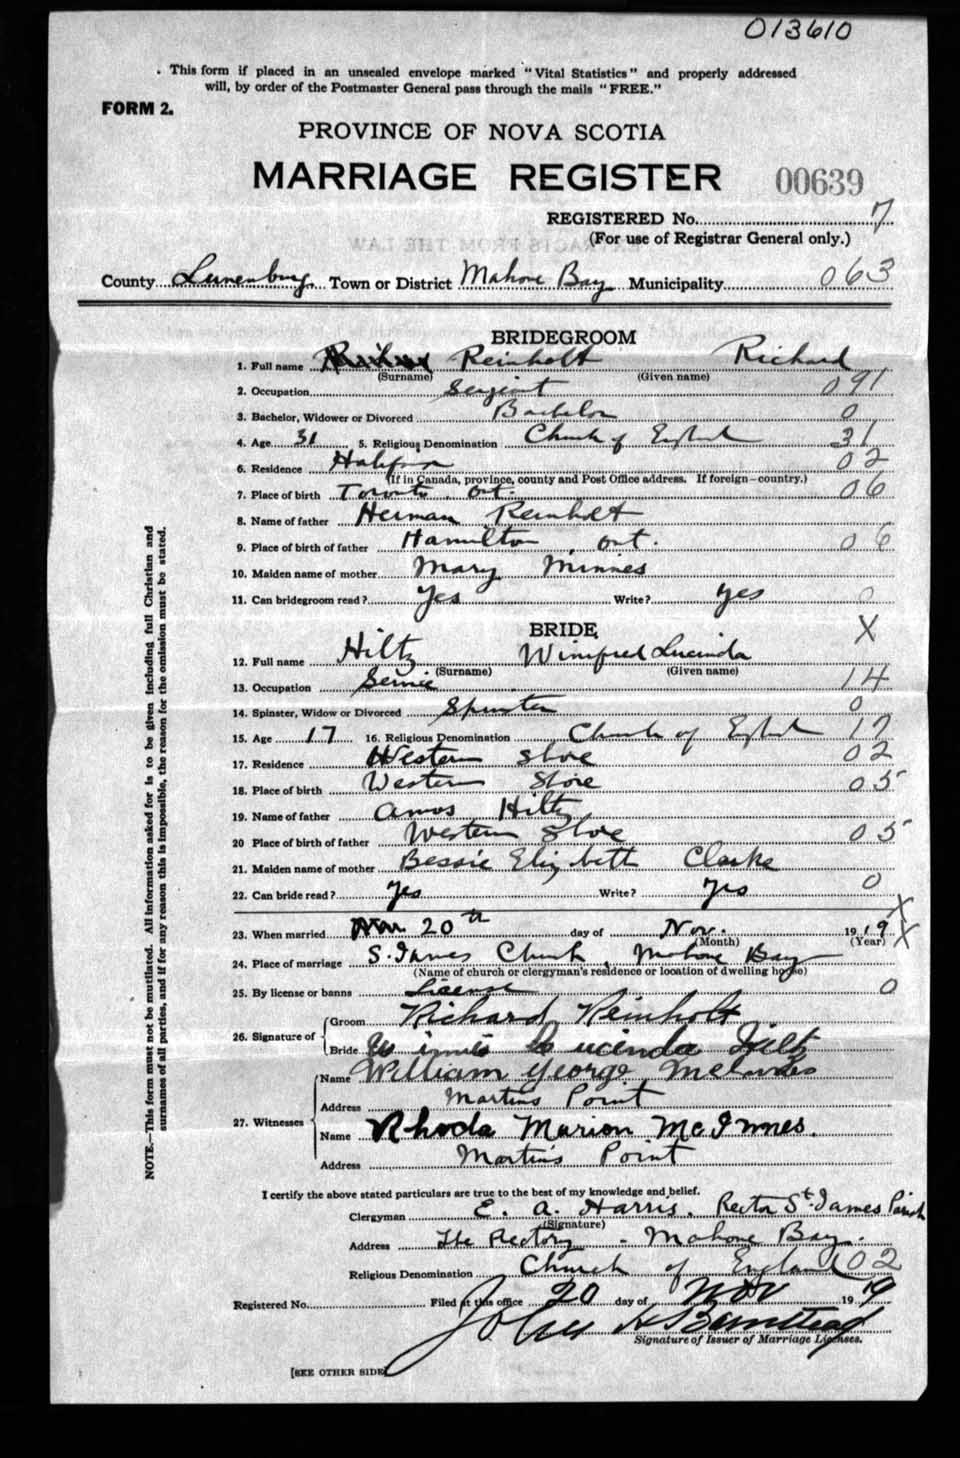 013610
. This form if placed in an unsealed envelope marked "Vital Statistics" and properly addressed
will, by order of the Postmaster General pass through the mails "FREE."
FORM 2.
PROVINCE OF NOVA SCOTIA
MARRIAGE REGISTER 00639
REGISTERED No. 7
(For use of Registrar General only.)
County Lunenburg Town or District Mahone Bay Municipality 063
BRIDEGROOM
1. Full name Reinholt Richard
(Surname) (Given name)
2. Occupation Serjeant 091
3. Bachelor, Widower or Divorced Bachelor 0
4. Age 31 5. Religious Denomination Church of England 31
6. Residence Halifax 02
(If in Canada, province, county and Post Office address. If foreign—country.)
7. Place of birth Toronto, Ont. 06
8. Name of father Herman Reinholt
9. Place of birth of father Hamilton, Ont. 06
10. Maiden name of mother Mary Minnes
11. Can bridegroom read? Yes Write? Yes 0
BRIDE X
12. Full name Hiltz Winifred Lucinda
(Surname) (Given name)
13. Occupation Service 14
14. Spinster, Widow or Divorced Spinster 0
15. Age 17 16. Religious Denomination Church of England 17
17. Residence Western Shore 02
18. Place of birth Western Shore 05
19. Name of father Amos Hiltz
20 Place of birth of father Western Shore 05
21. Maiden name of mother Bessie Elizabeth Clarke
22. Can bride read? Yes Write? Yes 0
X
23. When married 20th day of Nov. 1919 X
(Month) (Year)
24. Place of marriage S. James Church, Mahone Bay
(Name of church or clergyman's residence or location of dwelling house)
25. By license or banns License 0
26. Signature of Groom Richard Reinholt
Bride Lucenda Hiltz
27. Witnesses Name William George McInnes
Address Martins Point
Name Rhoda Marion McInnes.
Address Martins Point
I certify the above stated particulars are true to the best of my knowledge and belief.
Clergyman E. A. Harris, Rector St. James Parish
(Signature)
Address The Rectory - Mahone Bay.
Religious Denomination Church of England 02
Registered No. Filed at this office 20 day of Nov 1919
Signature of Issuer of Marriage Licenses.
[SEE OTHER SIDE]
NOTE.—This form must not be mutilated. All information asked for is to be given including full Christian and
surnames of all parties, and if for any reason this is impossible, the reason for the omission must be stated.